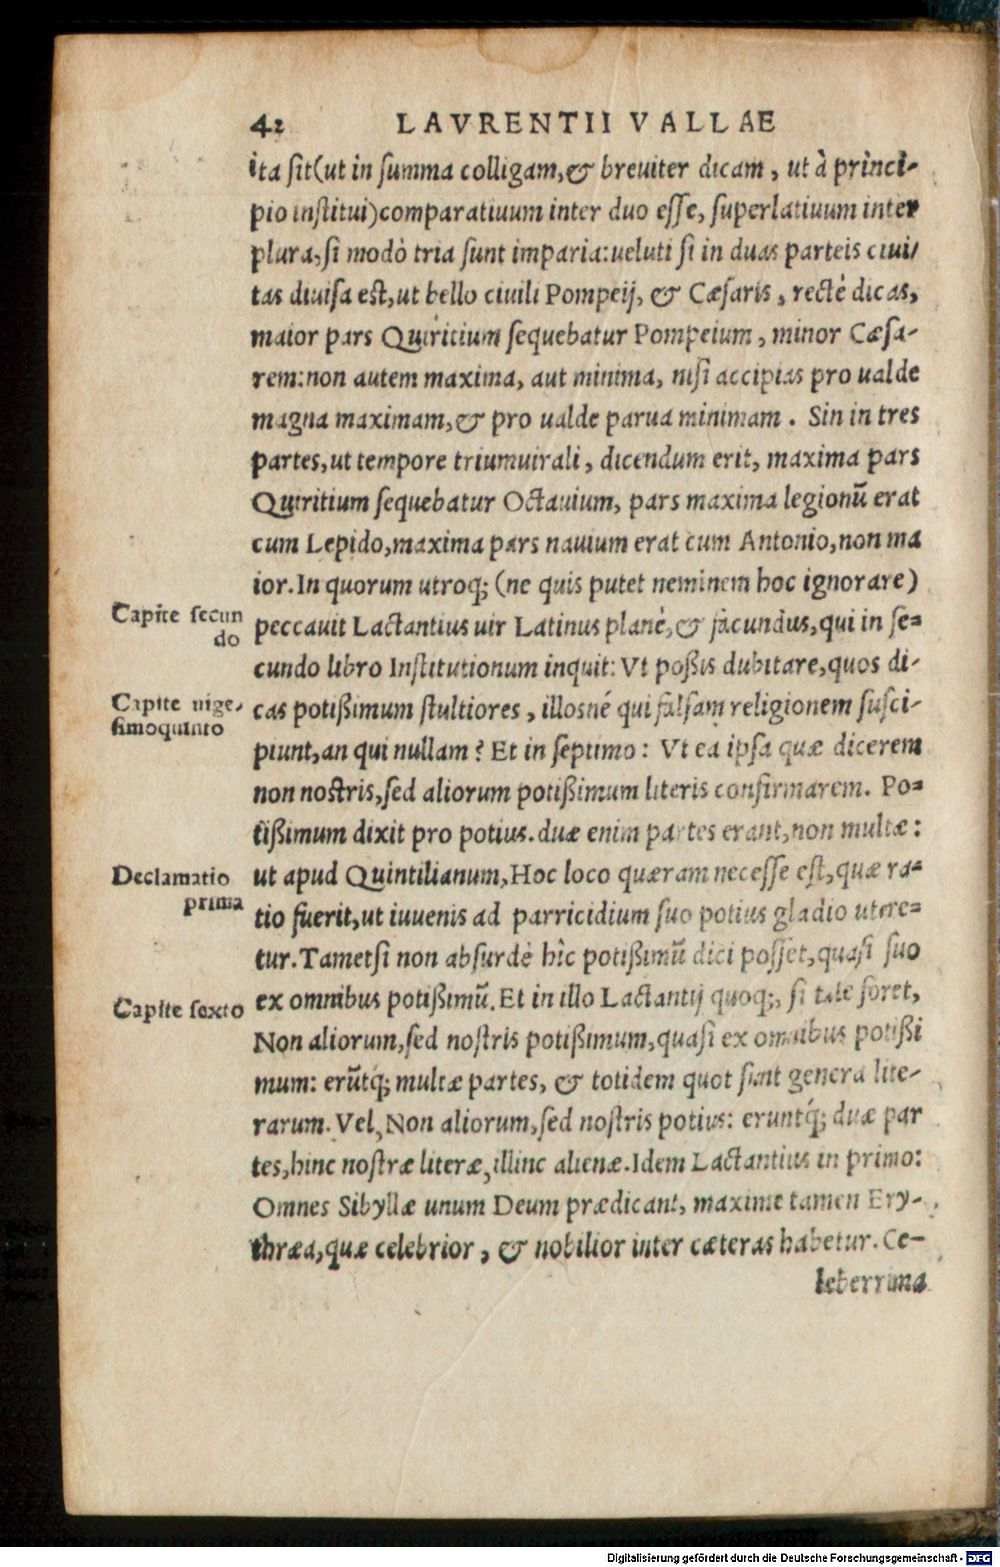 42 LAVRENTII VALLAE
ita sit(ut in summa colligam,& breuiter dicam, ut à princi-
pio institui)comparatiuum inter duo esse, superlatiuum inter
plura,si modò tria sunt imparia:ueluti si in duas parteis ciui/
tas diuisa est,ut bello ciuili Pompeij, & Cæsaris, rectè dicas,
maior pars Quiritium sequebatur Pompeium, minor Cæsa-
rem:non autem maxima, aut minima, nisi accipias pro ualde
magna maximam,& pro ualde parua minimam. Sin in tres
partes,ut tempore triumuirali, dicendum erit, maxima pars
Quiritium sequebatur Octauium, pars maxima legionū erat
cum Lepido,maxima pars nauium erat cum Antonio,non ma
ior.In quorum utroq; (ne quis putet neminem hoc ignorare)
Capite secun
do
peccauit Lactantius uir Latinus planè,& facundus,qui in se=
cundo libro Institutionum inquit: Vt poßis dubitare,quos di-
Capite uige-
simoquinto
cas potißimum stultiores, illosné qui falsam religionem susci-
piunt,an qui nullam? Et in septimo: Vt ea ipsa quæ dicerem
non nostris,sed aliorum potißimum literis confirmarem. Po=
tißimum dixit pro potius.duæ enim partes erant,non multæ:
Declamatio
prima
ut apud Quintilianum,Hoc loco quæram necesse est,quæ ra=
tio fuerit,ut iuuenis ad parricidium suo potius gladio utere=
tur.Tametsi non absurdè hîc potißimū dici posset,quasi suo
Capite sexto
ex omnibus potißimū.Et in illo Lactantij quoq;, si tale foret,
Non aliorum,sed nostris potißimum,quasi ex omnibus potißi
mum: erūtq́; multæ partes, & totidem quot sunt genera lite-
rarum.Vel,Non aliorum,sed nostris potius: eruntq́; duæ par
tes,hinc nostræ literæ,illinc alienæ.Idem Lactantius in primo:
Omnes Sibyllæ unum Deum prædicant, maxime tamen Ery-
thræa,quæ celebrior, & nobilior inter cæteras habetur.Ce-
leberrima
Digitalisierung gefördert durch die Deutsche Forschungsgemeinschaft - DFG